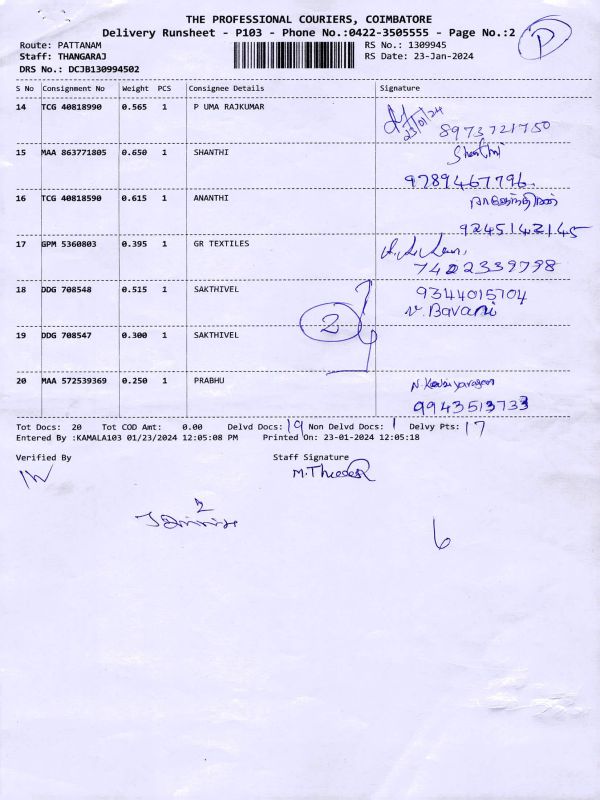 THE PROFESSIONAL COURIERS, COIMBATORE
Delivery Runsheet - P103 - Phone No.:0422-3505555 - Page No.:2
P
Route: PATTANAM
RS No.: 1309945
Staff: THANGARAJ
RS Date: 23-Jan-2024
DRS No.: DCJB130994502
S No Consignment No Weight PCS Consignee Details Signature
14 TCG 40818990 0.565 1 P UMA RAJKUMAR
23/01/24
8973721750
15 MAA 863771805 0.650 1 SHANTHI Shanthi
9789467796.
16 TCG 40818590 0.615 1 ANANTHI
9245142145
17 GPM 5360803 0.395 1 GR TEXTILES
7402339798
18 DDG 708548 0.515 1 SAKTHIVEL 9344015704
2
v. Bavani
19 DDG 708547 0.300 1 SAKTHIVEL
20 MAA 572539369 0.250 1 PRABHU
9943513733
Tot Docs: 20 Tot COD Amt: 0.00 Delvd Docs: 19 Non Delvd Docs: 1 Delvy Pts: 17
Entered By :KAMALA103 01/23/2024 12:05:08 PM Printed On: 23-01-2024 12:05:18
Verified By Staff Signature
2
6